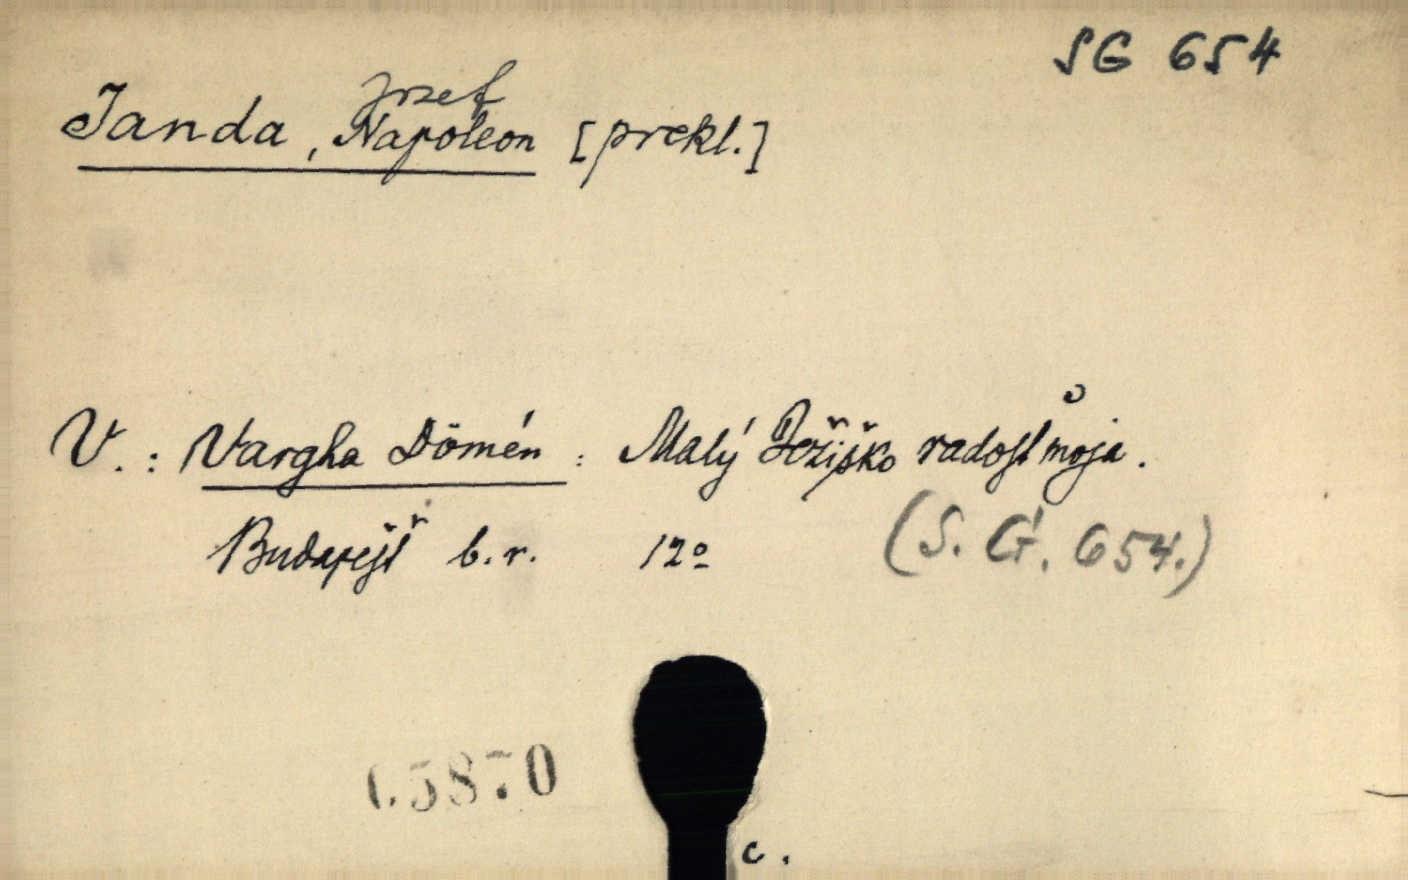 SG 654
Jozef
Janda, Napoleon [prekl.]
V.: Vargha Dömén: Malý Ježiško radosť moja.
Budapešť b. r. 12º (S. G. 654.)
5870
c.